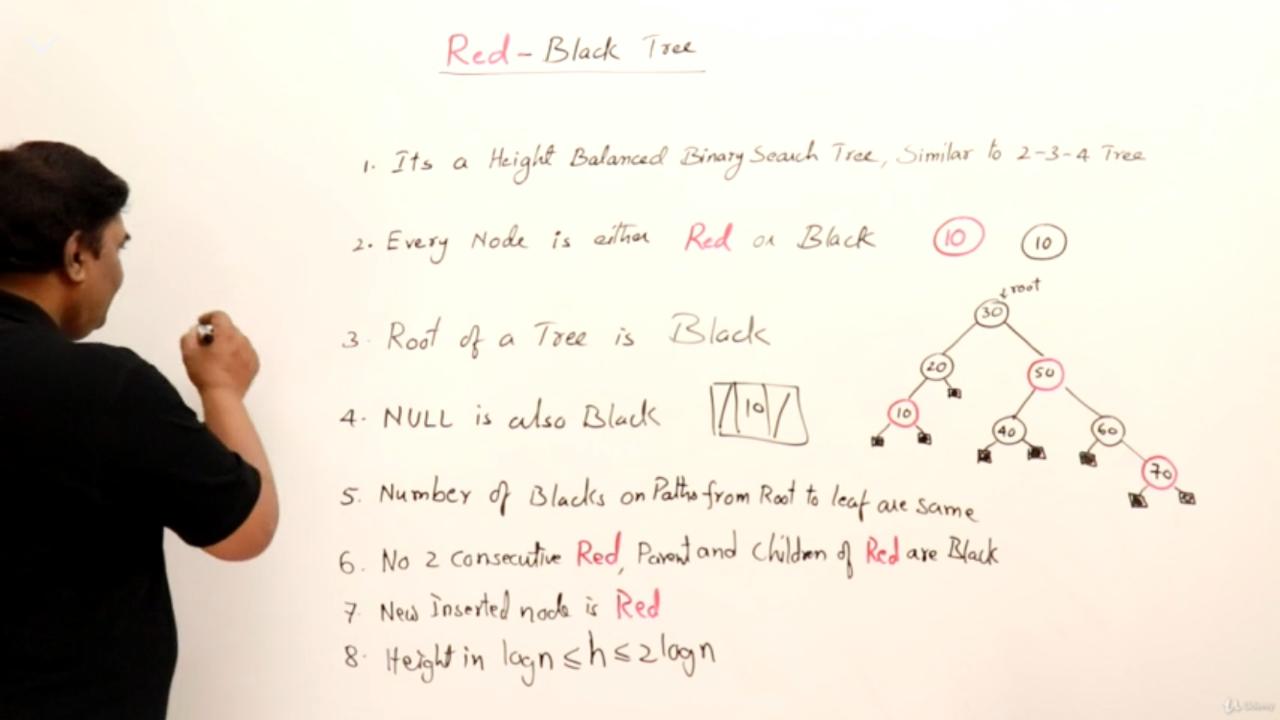 Red-Black Tree
1. Its a Height Balanced Binary Search Tree, Similar to 2-3-4 Tree
2. Every Node is either Red or Black 10 10
root
30
3. Root of a Tree is Black
20 50
4. NULL is also Black 10
10 40 60
70
5. Number of Blacks on Paths from Root to leaf are same
6. No 2 consecutive Red, Parent and Children of Red are Black
7. New Inserted node is Red
8. Height in logn ≤ h ≤ 2logn
Udemy